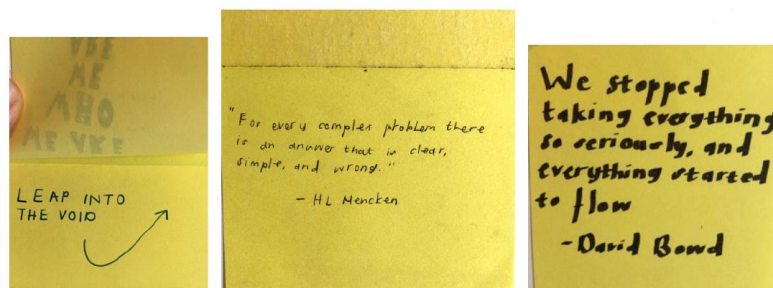 LEAP INTO
THE VOID
"For every complex problem there
is an answer that is clear,
simple, and wrong."
- HL Mencken
We stopped
taking everything
so seriously, and
everything started
to flow
-David Bowd